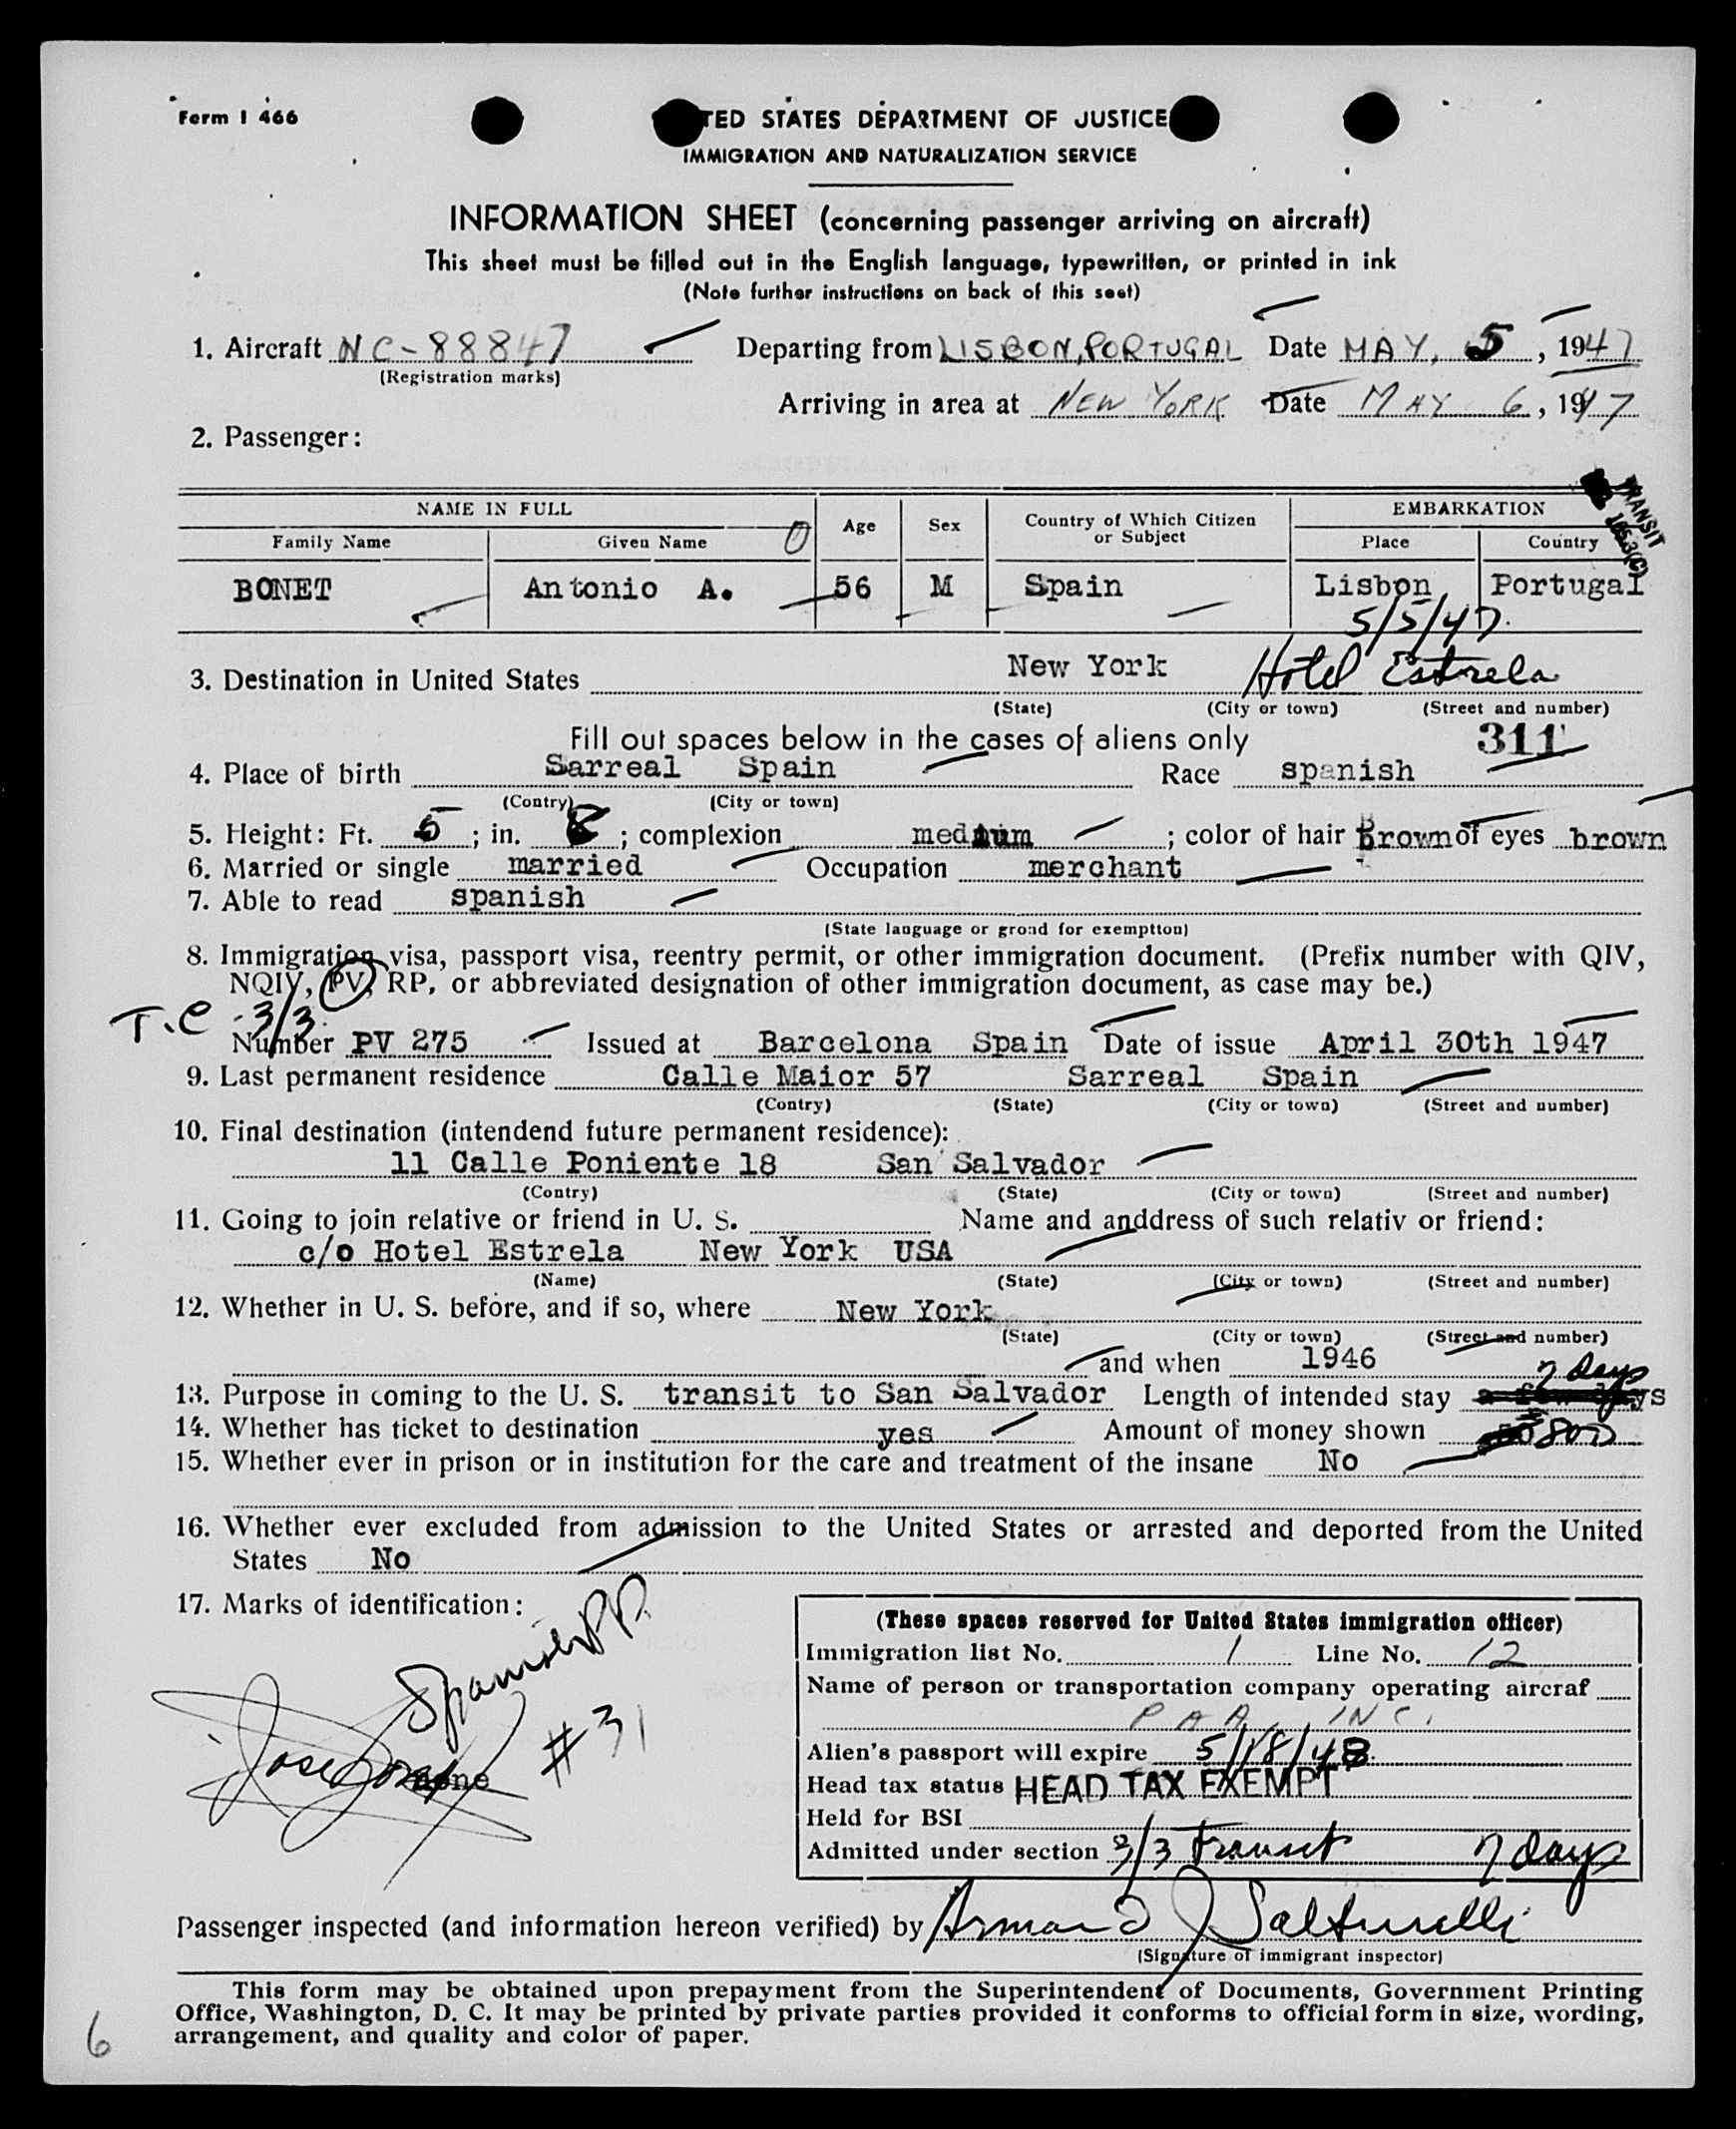 Form I 466
TED STATES DEPARTMENT OF JUSTICE
IMMIGRATION AND NATURALIZATION SERVICE
INFORMATION SHEET (concerning passenger arriving on aircraft)
This sheet must be filled out in the English language, typewritten, or printed in ink
(Note further instructions on back of this seet)
1. Aircraft NC-88847 Departing from LISBON, PORTUGAL Date MAY, 5, 1947
(Registration marks)
Arriving in area at NEW YORK Date MAY 6, 1947
2. Passenger:
TRANSIT
NAME IN FULL Age Sex Country of Which Citizen or Subject EMBARKATION
Family Name Given Name Place Country
BONET Antonio A. 56 M Spain Lisbon Portugal
5/5/47.
3. Destination in United States New York Hotel Estrela
(State) (City or town) (Street and number)
Fill out spaces below in the cases of aliens only 311
4. Place of birth Sarreal Spain Race spanish
(Contry) (City or town)
5. Height: Ft. 5; in. 8; complexion medium; color of hair Brown of eyes brown
6. Married or single married Occupation merchant
7. Able to read spanish
(State language or grond for exemptton)
8. Immigration visa, passport visa, reentry permit, or other immigration document. (Prefix number with QIV,
NQIV, PV, RP, or abbreviated designation of other immigration document, as case may be.)
T.C 3/3.
Number PV 275 Issued at Barcelona Spain Date of issue April 30th 1947
9. Last permanent residence Calle Maior 57 Sarreal Spain
(Contry) (State) (City or town) (Street and number)
10. Final destination (intendend future permanent residence):
11 Calle Poniente 18 San Salvador
(Contry) (State) (City or town) (Street and number)
11. Going to join relative or friend in U. S. Name and anddress of such relativ or friend:
c/o Hotel Estrela New York USA
(Name) (State) (City or town) (Street and number)
12. Whether in U. S. before, and if so, where New York
(State) (City or town) (Street and number)
and when 1946
7 days
13. Purpose in coming to the U. S. transit to San Salvador Length of intended stay
14. Whether has ticket to destination yes Amount of money shown 800
15. Whether ever in prison or in institution for the care and treatment of the insane No
16. Whether ever excluded from admission to the United States or arrested and deported from the United
States No
17. Marks of identification:
Spanish PP.
#31
none
(These spaces reserved for United States immigration officer)
Immigration list No. 1 Line No. 12
Name of person or transportation company operating aircraf
P A A, INC.
Alien's passport will expire 5/18/48
Head tax status HEAD TAX EXEMPT
Held for BSI
Admitted under section 3/3 transit 7 days
Passenger inspected (and information hereon verified) by Armand J Salturelli
(Signature of immigrant inspector)
This form may be obtained upon prepayment from the Superintendent of Documents, Government Printing
Office, Washington, D. C. It may be printed by private parties provided it conforms to official form in size, wording,
arrangement, and quality and color of paper.
6